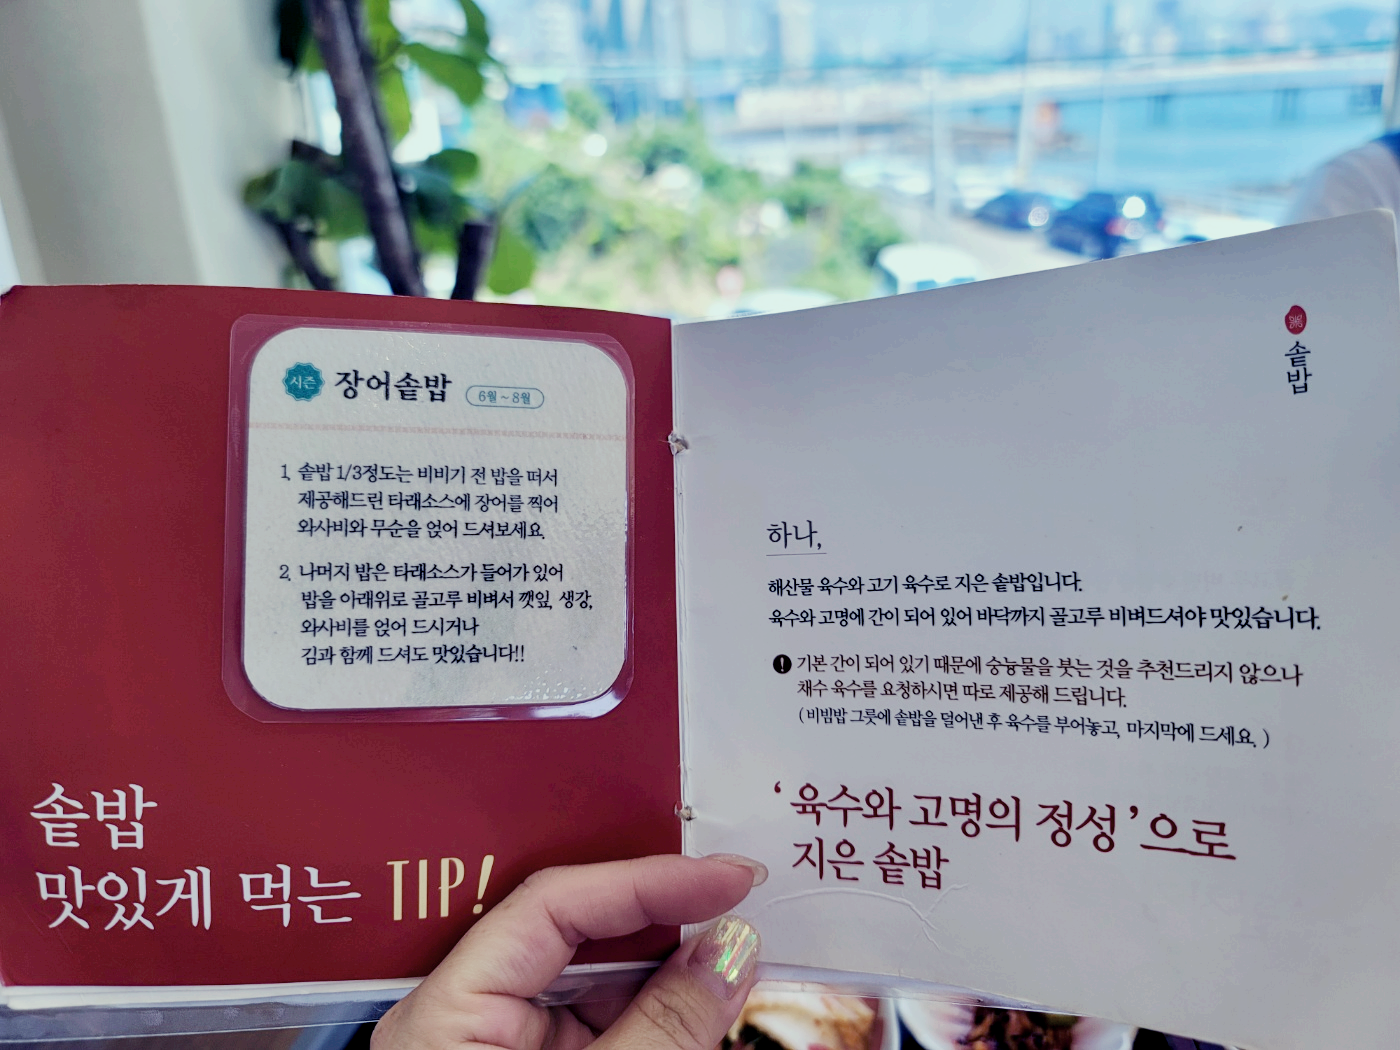 시즌 장어솥밥 6월~8월
1. 솥밥 1/3정도는 비비기 전 밥을 떠서
제공해드린 타래소스에 장어를 찍어
와사비와 무순을 얹어 드셔보세요.
2. 나머지 밥은 타래소스가 들어가 있어
밥을 아래위로 골고루 비벼서 깻잎, 생강,
와사비를 얹어 드시거나
김과 함께 드셔도 맛있습니다!!
솥밥
맛있게 먹는 TIP!
솥밥
하나,
해산물 육수와 고기 육수로 지은 솥밥입니다.
육수와 고명에 간이 되어 있어 바닥까지 골고루 비벼드셔야 맛있습니다.
! 기본 간이 되어 있기 때문에 숭늉물을 붓는 것을 추천드리지 않으나
채수 육수를 요청하시면 따로 제공해 드립니다.
( 비빔밥 그릇에 솥밥을 덜어낸 후 육수를 부어놓고, 마지막에 드세요. )
‘육수와 고명의 정성’으로
지은 솥밥